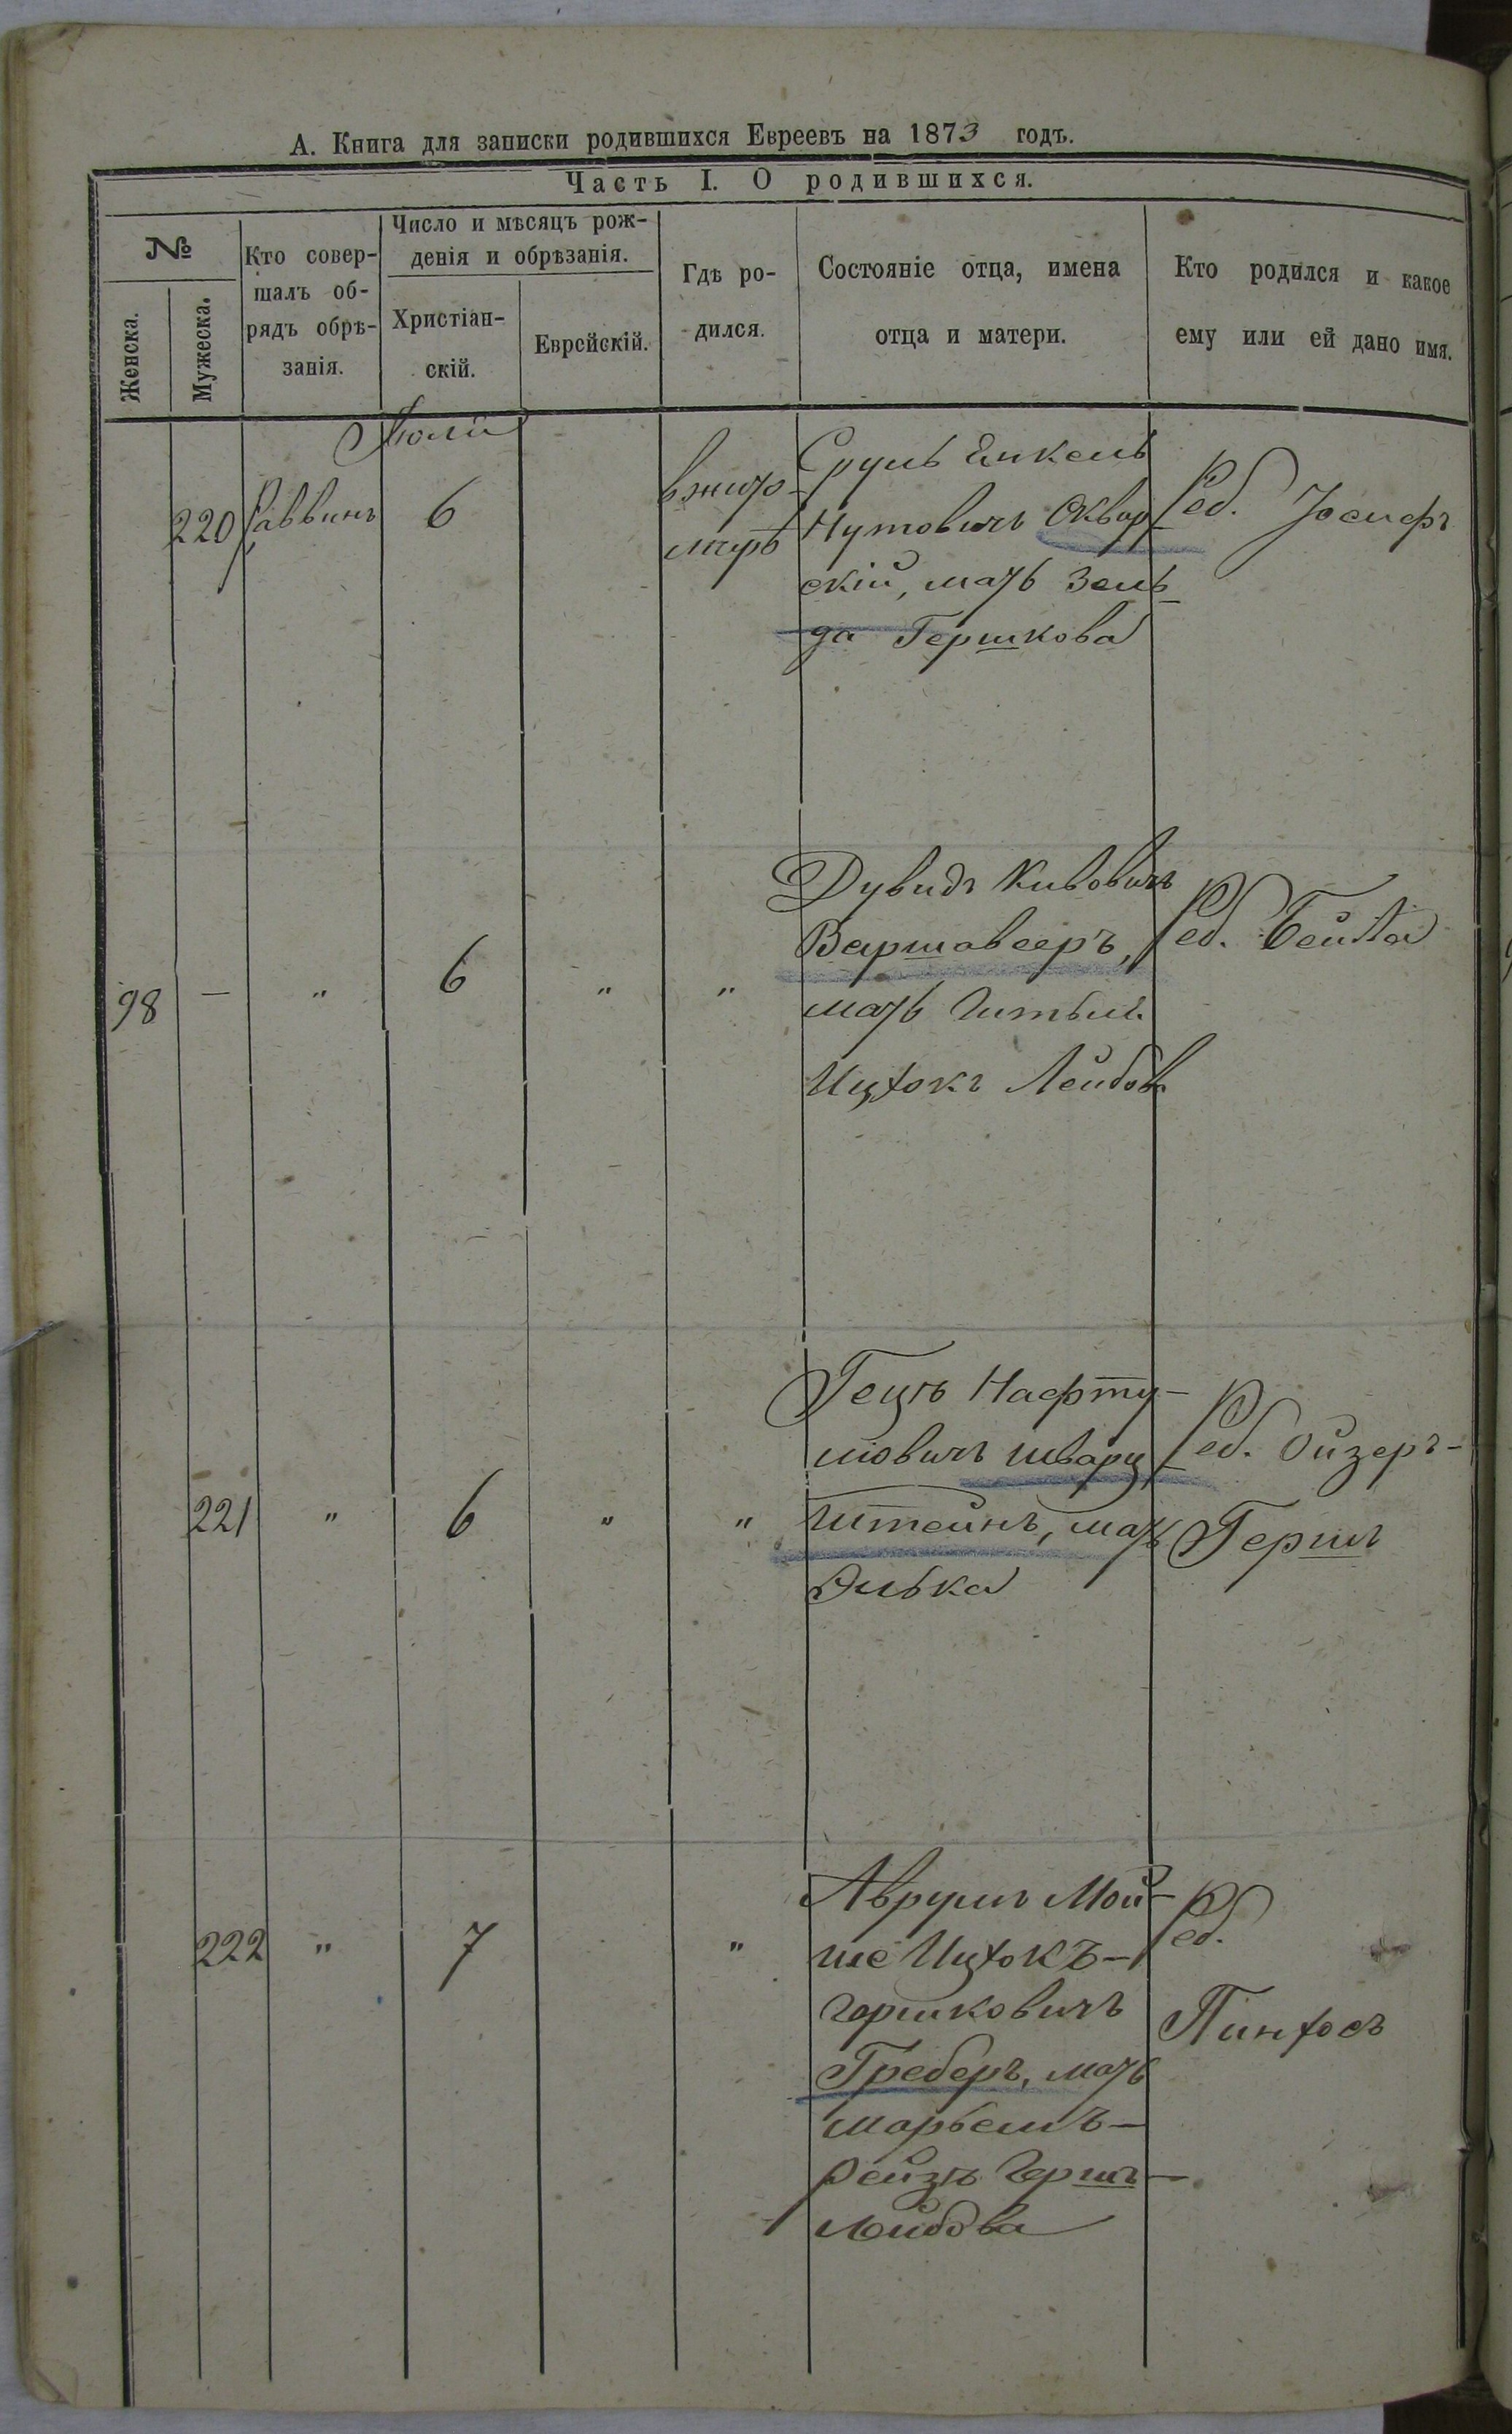 А. Книга для записки родившихся Евреевъ на 1873 годъ.
Часть I. О родившихся.
№
Женска.
Мужеска.
Кто совер-
шалъ об-
рядъ обрѣ-
занія.
Число и мѣсяцъ рож-
денія и обрѣзанія.
Христіан-
скій.
Еврейскій.
Гдѣ ро-
дился.
Состояніе отца, имена
отца и матери.
Кто родился и какое
ему или ей дано имя.
Іюли
220 Раввинъ 6
в жито-
мирѣ
Сруль Янкель
Нутовичъ Сквир-
скій, мать Зель-
да Гершкова
Реб. Іосифъ
98 — " 6 " "
Дувидъ Кивовичъ
Варшавееръ,
мать
Ицхокъ Лейбов
Реб. Бейла
221 " 6 " "
Гецъ Нафту-
ловичъ Шварц-
штейнъ, мать
Элька
Реб. Ойзеръ-
Гершъ
222 " 7 "
Аврумъ Мой-
ше Ицхокъ-
Гершковичъ
Греберъ, мать
Марьемъ-
Рейзъ Гершъ-
Лейбова
Реб.
Пинхосъ